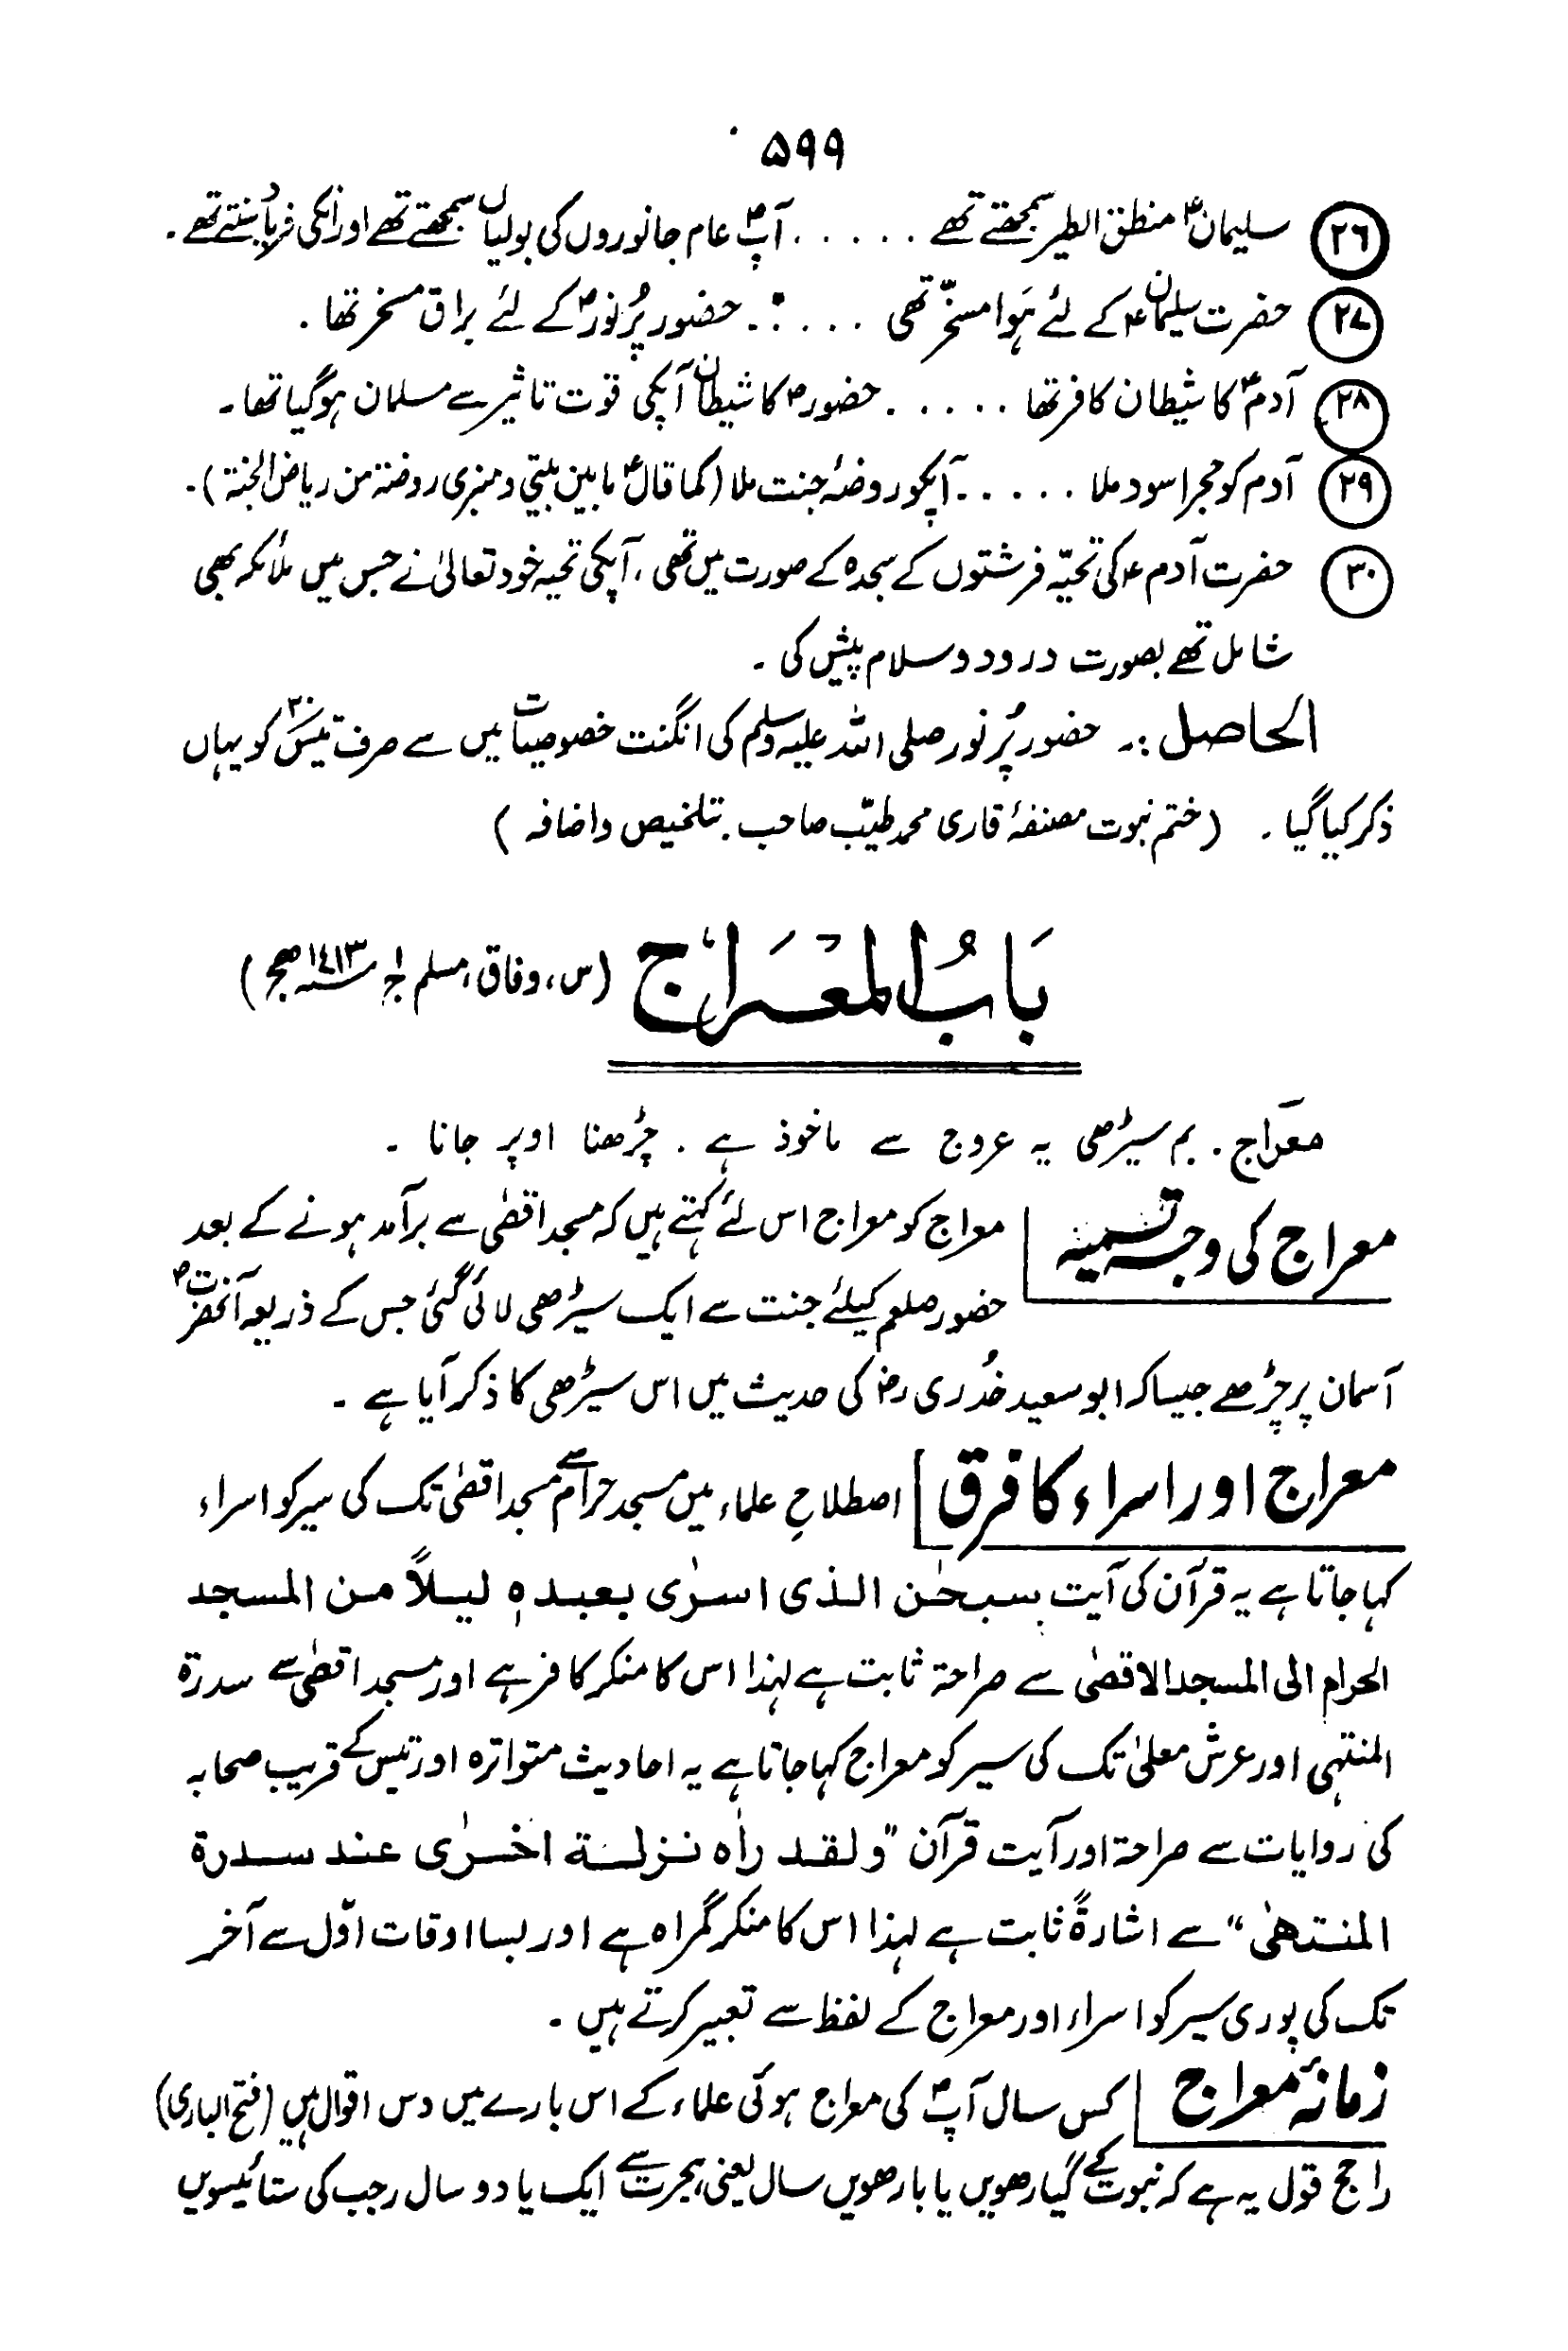 ۵۹۹
(۲۶) سلیمانؑ منطق الطیر سمجھتے تھے ..... آپؐ عام جانوروں کی بولیاں سمجھتے تھے اور انکی فریاد سنتے تھے۔
(۲۷) حضرت سلیمانؑ کے لئے ہَوا مسخّر تھی ..... حضور پُرنورؐ کے لئے براق مسخر تھا۔
(۲۸) آدمؑ کا شیطان کافر تھا ..... حضورؐ کا شیطان آپکی قوت تاثیر سے مسلمان ہوگیا تھا۔
(۲۹) آدم کو حجر اسود ملا ..... آپکو روضۂ جنت ملا (کما قالؑ مابین بیتی ومنبری روضۃ من ریاض الجنۃ)۔
(۳۰) حضرت آدمؑ کی تحیّہ فرشتوں کے سجدہ کے صورت میں تھی، آپکی تحیہ خود تعالیٰ نے جس میں ملائکہ بھی
شامل تھے بصورت درود وسلام پیش کی۔
الحاصل :۔ حضور پُرنور صلی اللہ علیہ وسلم کی انگنت خصوصیات میں سے صرف تیسؔ ۳۰ کو یہاں
ذکر کیا گیا۔ (ختم نبوت مصنفۂ قاری محمد طیّب صاحب۔ تلخیص واضافہ)
بَابُ المعْرَاج (س، وفاق، مسلم ج۱ ۱۴۱۳ھ)
معراج۔ بم سیڑھی یہ عروج سے ماخوذ ہے۔ چڑھنا اوپر جانا۔
معراج کی وجہ تسمیہ | معراج کو معراج اس لئے کہتے ہیں کہ مسجد اقصٰی سے برآمد ہونے کے بعد
حضور صلعم کیلئے جنت سے ایک سیڑھی لائی گئی جس کے ذریعہ آنحضرتؐ
آسمان پر چڑھے جیسا کہ ابوسعید خُدری رضؓ کی حدیث میں اس سیڑھی کا ذکر آیا ہے۔
معراج اور اسراء کا فرق | اصطلاحِ علماء میں مسجد حرام سے مسجد اقصٰی تک کی سیر کو اسراء
کہا جاتا ہے یہ قرآن کی آیت سبحٰن الذی اسرٰی بعبدہٖ لیلاً من المسجد
الحرام الی المسجد الاقصٰی سے صراحۃ ثابت ہے لہٰذا اس کا منکر کافر ہے اور مسجد اقصٰی سے سدرۃ
المنتہی اور عرش معلیٰ تک کی سیر کو معراج کہا جاتا ہے یہ احادیث متواترہ اور تیس کے قریب صحابہ
کی روایات سے صراحۃ اور آیت قرآن "ولقد راٰہ نزلۃ اخرٰی عند سدرۃ
المنتھٰی" سے اشارۃً ثابت ہے لہٰذا اس کا منکر گمراہ ہے اور بسا اوقات اوّل سے آخر
تک کی پوری سیر کو اسراء اور معراج کے لفظ سے تعبیر کرتے ہیں۔
زمانۂ معراج | کس سال آپؐ کی معراج ہوئی علماء کے اس بارے میں دس اقوال ہیں (فتح الباری)
راجح قول یہ ہے کہ نبوت کے گیارھویں یا بارھویں سال یعنی ہجرت سے ایک یا دو سال رجب کی ستائیسویں